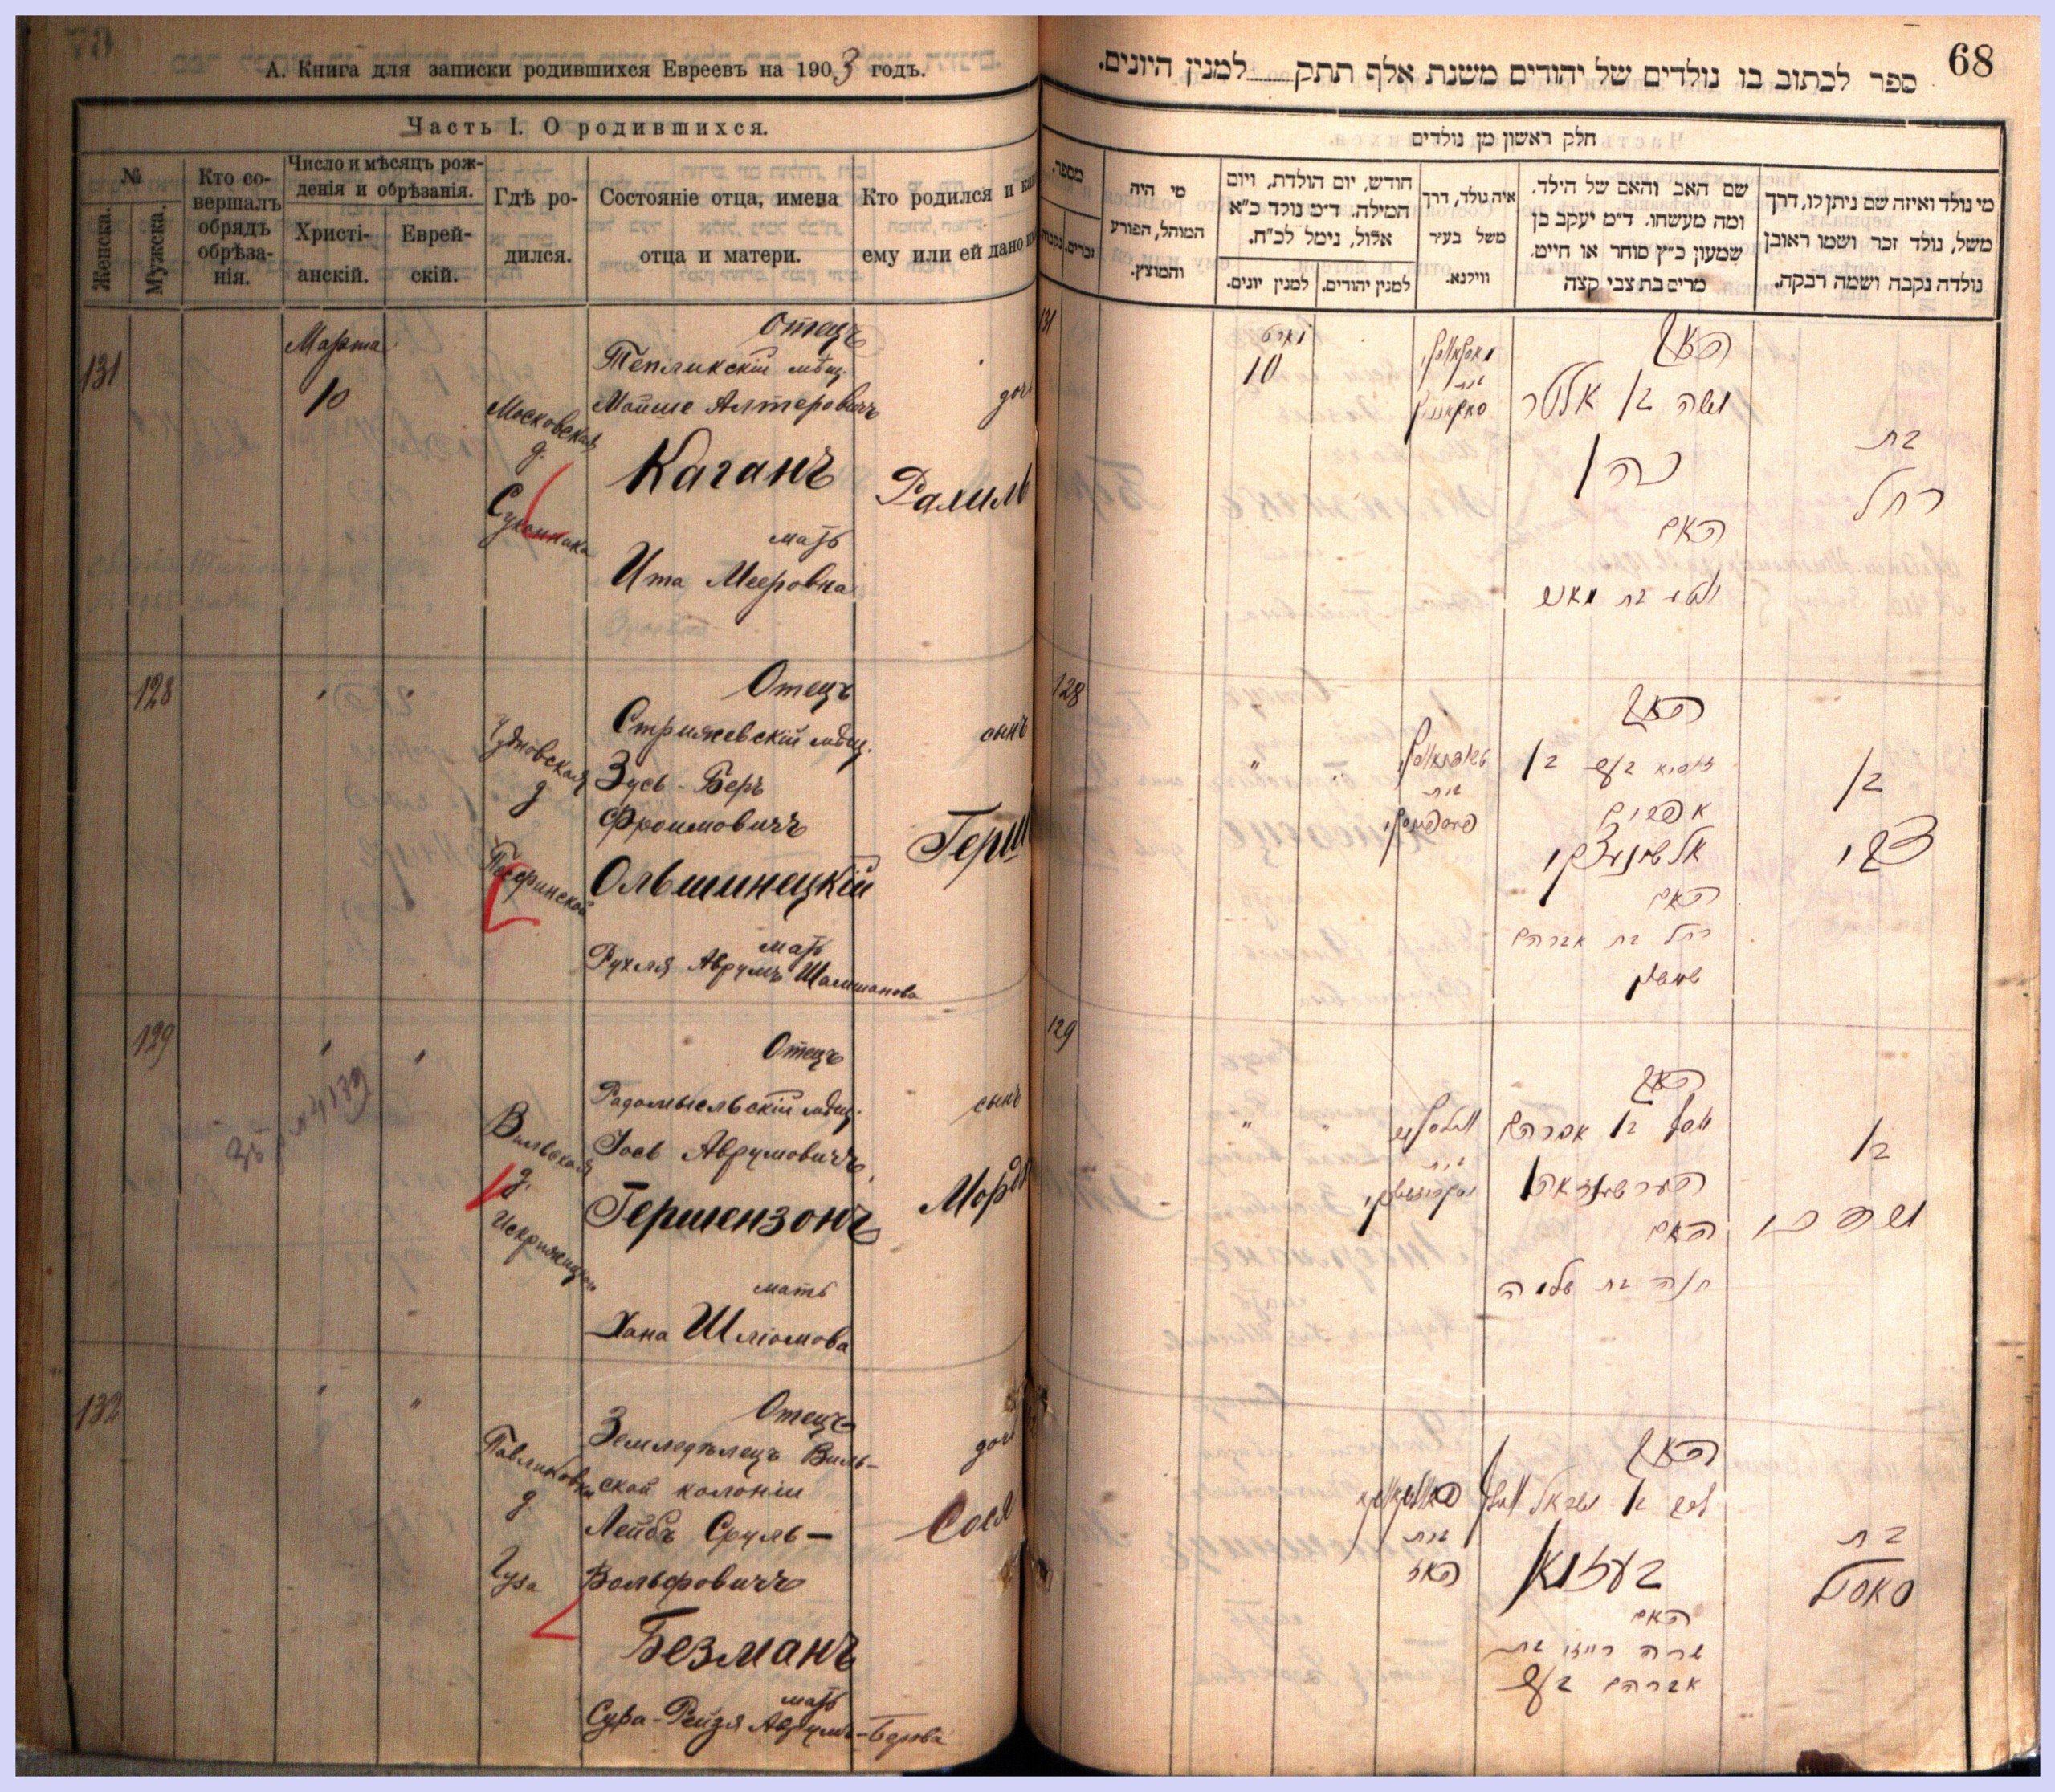 А. Книга для записки родившихся Евреевъ на 1903 годъ.
Часть I. О родившихся.
№
Женска.
Мужска.
Кто со-
вершалъ
обрядъ
обрѣза-
нія.
Число и мѣсяцъ рож-
денія и обрѣзанія.
Христі-
анскій.
Еврей-
скій.
Гдѣ ро-
дился.
Состояніе отца, имена
отца и матери.
Кто родился и как
ему или ей дано
131
Марта
10
Московская
д.
Отецъ
Тепликскій мѣщ.
Мойше Алтеровичъ
Каганъ
мать
Ита Мееровна
доч
Рахиль
128
Чудновская
д
Отецъ
Стрижевскій мѣщ.
Зусь-Беръ
Фроимовичъ
Ольшинецкій
мать
Рухля Аврумъ Шамшанова
сынъ
Герш
129
Вильская
д.
Отецъ
Радомысльскій мѣщ.
Іось Аврумовичъ
Гершензонъ
мать
Хана Шліомова
сынъ
Морд
132
Павликовка
д
Гуза
Отецъ
Земледѣлецъ Виль-
ской колоніи
Лейбъ Сруль-
Вольфовичъ
Безманъ
мать
Сура-Рейзя Аврумъ-Берова
доч
Сося
68
ספר לכתוב בו נולדים של יהודים משנת אלף תתק למנין היונים.
חלק ראשון מן נולדים
מספר.
זכרים.
נקבות
מי היה
המוהל, הפורע
והמוצץ.
חודש, יום הולדת, ויום
המילה. ד״מ נולד כ״א
אלול, נימל לכ״ח.
למנין יונים.
למנין יהודים.
איה נולד, דרך
משל בעיר
ווילנא.
שם האב והאם של הילד.
ומה מעשהו. ד״מ יעקב בן
שמעון כ״ץ סוחר או חייט.
מרים בת צבי קצה
מי נולד ואיזה שם ניתן לו, דרך
משל, נולד זכר ושמו ראובן
נולדה נקבה ושמה רבקה.
131
מארט
10
האב
משה בן אלטר
כהן
האם
בת
רחל
128
האב
זוסיא בער בן
אפרים
אלשינעצקי
האם
רחל בת אברהם
בן
צבי
129
האב
יוסף בן אברהם
הערשענזאהן
האם
חנה בת שלמה
בן
מרדכי
האב
ליב בן ישראל וואלף
בעזמאן
האם
שרה רייזי בת
אברהם בער
בת
סאסיל